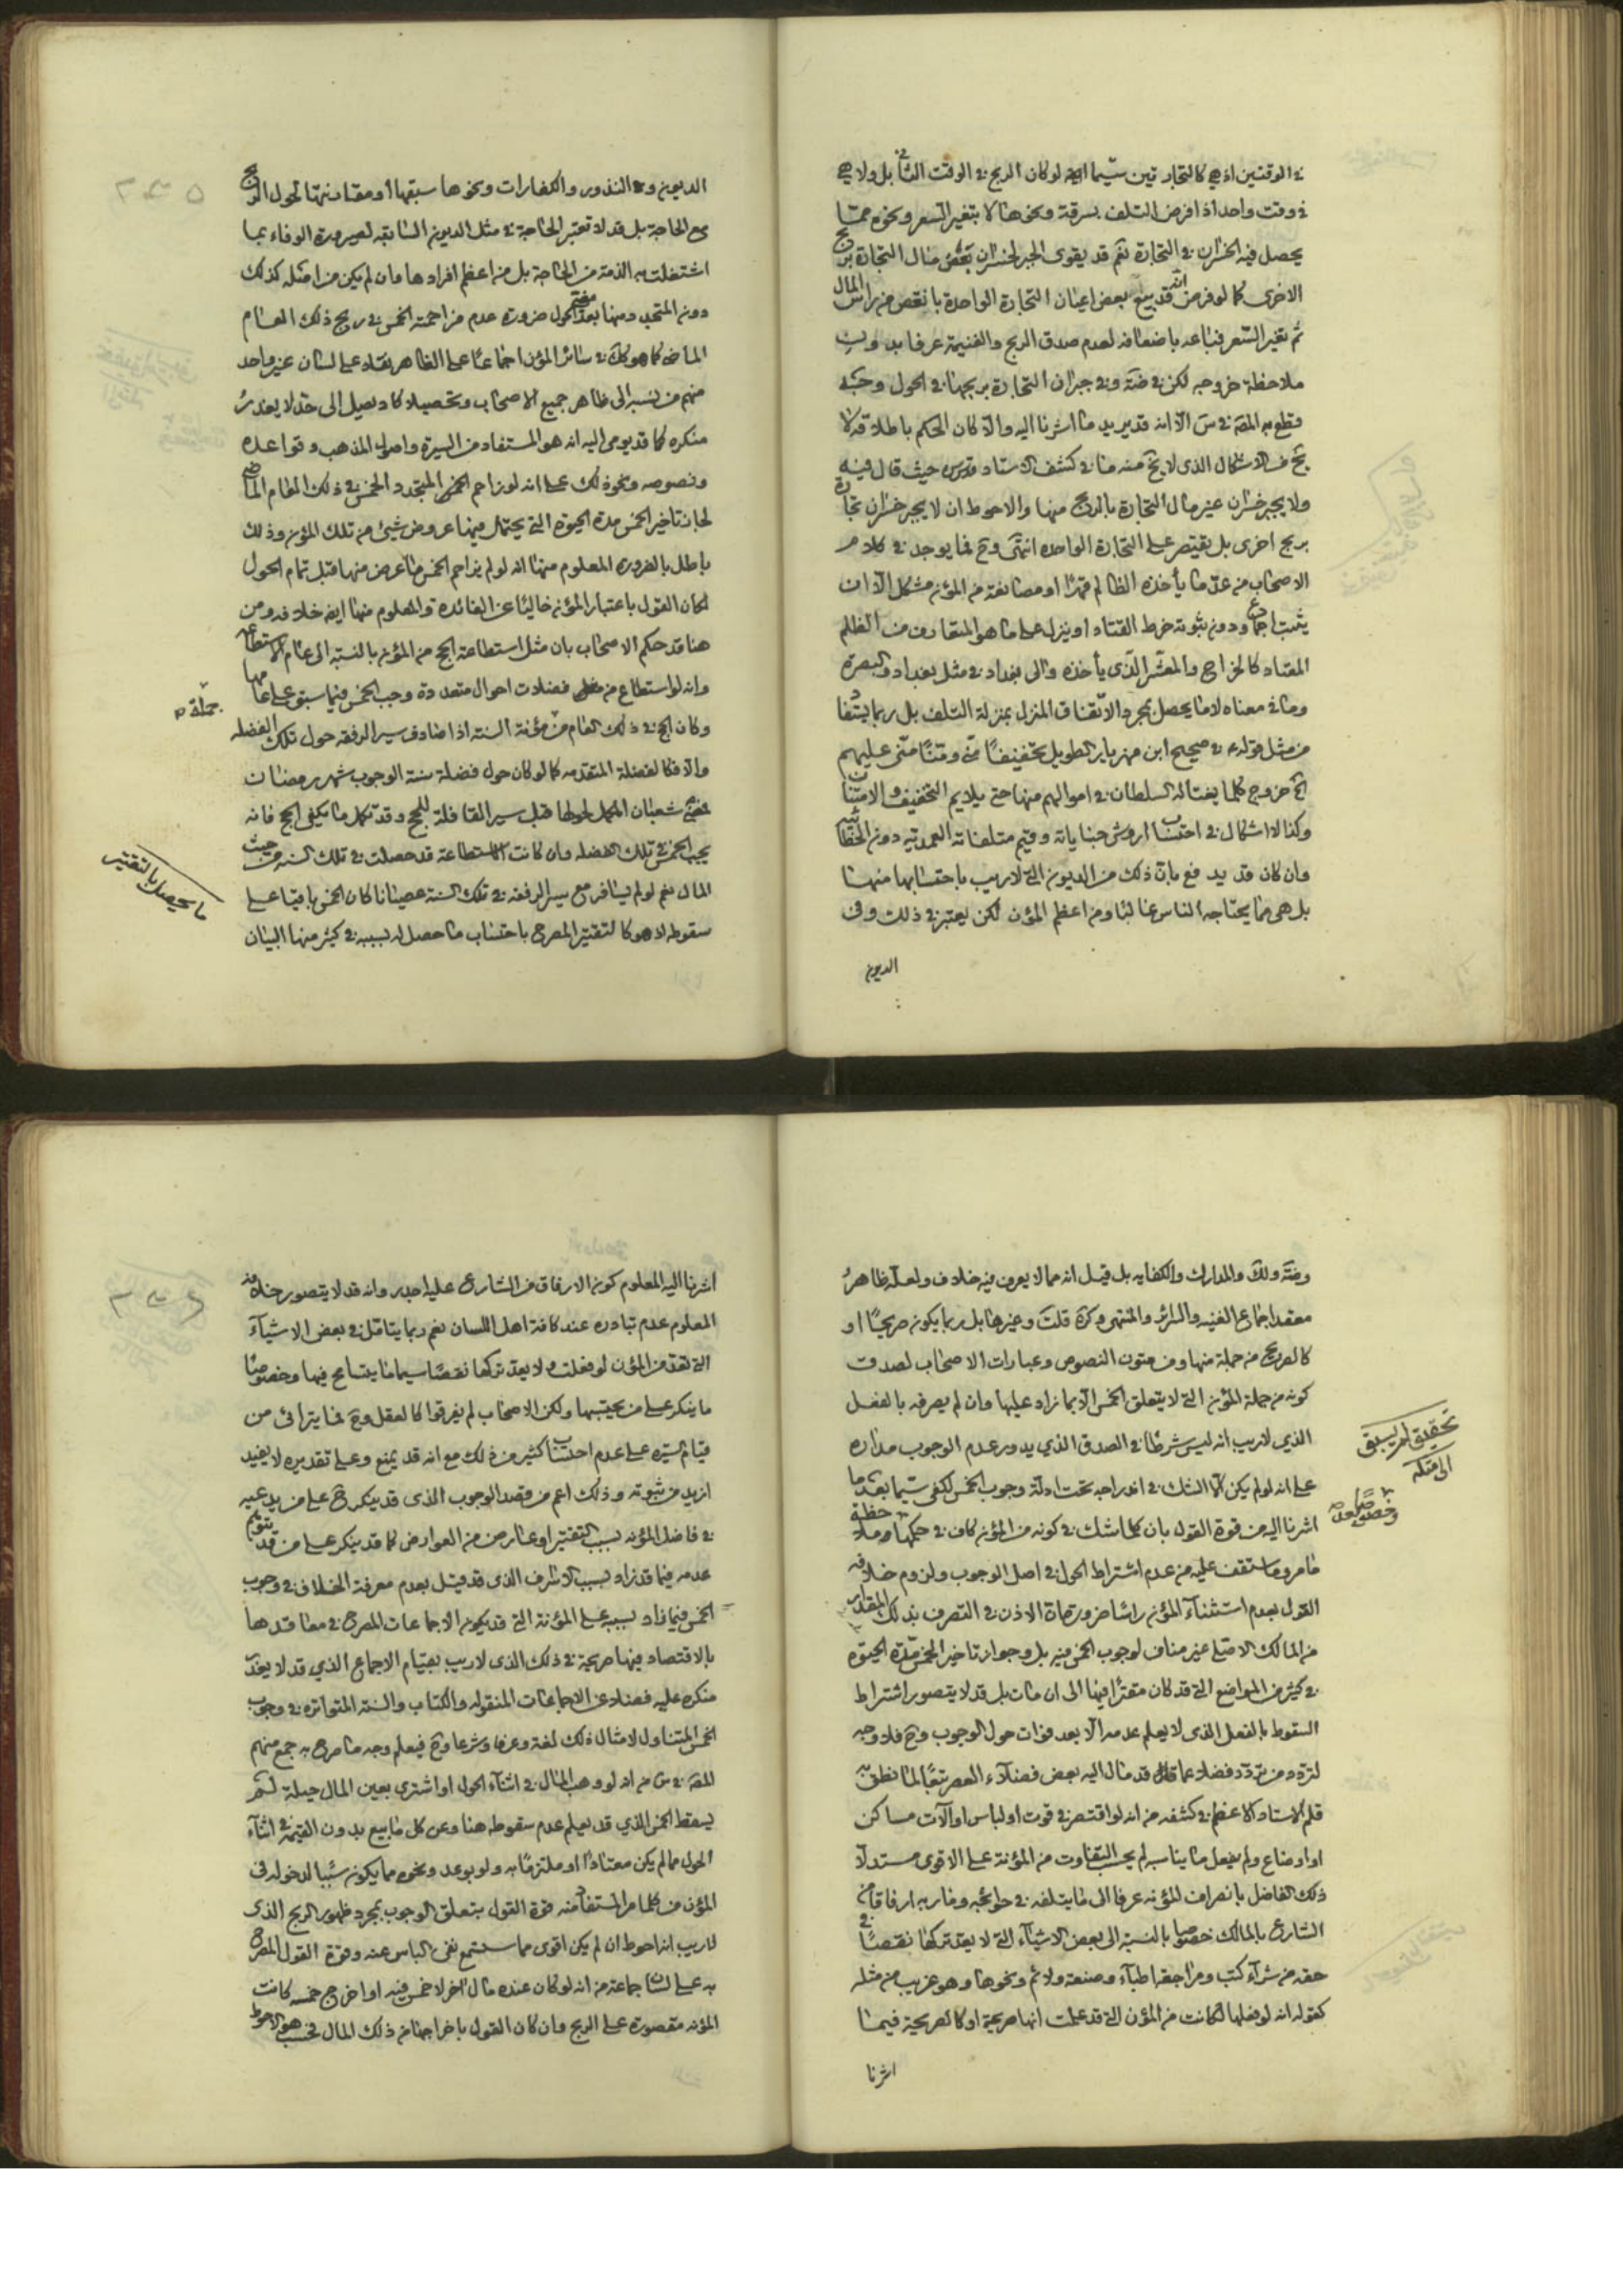 في الوقتين اذ هي كالتجارتين سيما لو كان الربح في الوقت الثاني بل ولا هي
في وقت واحد اذا فرض التلف بسرقة ونحوها لا بتغير السعر ونحوه مما
يحصل فيه الخسران في التجارة نعم قد يقوى الجبر لخسران بعض مال التجارة بربح
الاخرى كما لو فرض انه قد بيع بعض اعيان التجارة الواحدة بانقص من راس المال
ثم تغير السعر فباعه باضعافه لعدم صدق الربح والغنيمة عرفا بدون
ملاحظة خروجه لكن في ضة وفي جبران التجارة بربحها في الحول وجه
قطع به المصة في س الا انه قد يريد ما اشرنا اليه والا كان الحكم باطلاقه لا
يخ من الاشكال الذي لا يخ منه ما في كشف الاستاد قدس حيث قال فيه
ولا يجبر خسران غير مال التجارة بالربح منها والاحوط ان لا يجبر خسران تجارة
بربح اخرى بل يقتصر على التجارة الواحدة انتهى وح فما يوجد في كلام
الاصحاب من عد ما يأخذه الظالم قهرا او مصانعة من المؤن مشكل الا ان
يثبت اجماع ودون ثبوته خرط القتاد او ينزل على ما هو المتعارف من الظلم
المعتاد كالخراج والعشر الذي يأخذه والي بغداد في مثل بغداد والبصرة
وما في معناه لا ما يحصل بمجرد الاتفاق المنزل بمنزلة التلف بل ربما يستفاد
من مثل قوله ع في صحيح ابن مهزيار الطويل تخفيفا مني ومنا مني عليهم
الخ خروج كلما يغتاله السلطان في اموالهم منها حتى يلايم التخفيف والامتنان
وكذا لا اشكال في احتساب اروش جناياته وقيم متلفاته العمدية دون الخطائية
وان كان قد يدفع بان ذلك من الديون التي لا ريب باحتسابها منها
بل هي مما يحتاجه الناس غالبا ومن اعظم المؤن لكن يعتبر في ذلك وفي
الديون
الديون وفي النذور والكفارات ونحوها سبقها او مقارنتها لحول الربح
مع الحاجة بل قد لا تعتبر الحاجة في مثل الديون السابقة لصيرورة الوفاء بما
اشتغلت به الذمة من الحاجة بل من اعظم افرادها وان لم يكن من اصله كذلك
دون المتجدد منها بعد مضي الحول ضرورة عدم مزاحمته الخمس في ربح ذلك العام
الماضي كما هو كك في سائر المؤن اجماعا على الظاهر نقله على لسان غير واحد
منهم من نسبه الى ظاهر جميع الاصحاب وتحصيلا كاد يصل الى حد لا يعذر
منكره كما قد يومي اليه انه هو المستفاد من السيرة واصول المذهب وقواعده
ونصوصه ونحو ذلك على انه لو زاحم المتجدد الخمس في ذلك العام الماضي
لجاز تاخير الخمس مدة الحيوة التي يحتمل فيها عروض شيئ من تلك المؤن وذلك
باطل بالضرورة المعلوم منها انه لو لم يزاحم الخمس ما عرض منها قبل تمام الحول
لكان القول باعتبار المؤن خاليا عن الفائدة والمعلوم منها ايضا خلافه ومن
هنا قد حكم الاصحاب بان مثل استطاعة الحج من المؤن بالنسبة الى عام الاستطاعة
وانه لو استطاع من فضلات احوال متعددة وجب الخمس فيما سبق على عامها
جملة
وكان الحج في ذلك العام من مؤنة السنة اذا صادف سير الرفقة حول تلك الفضلة
والا فكالفضلة المتقدمة كما لو كان حول فضلة سنة الوجوب شهر رمضان
شعبان المكمل لحولها قبل سير القافلة للحج وقد تكمل ما يكفي الحج فانه
يجب الخمس في تلك الفضلة وان كانت الاستطاعة قد حصلت في تلك السنة من حيث
المال نعم لو لم يسافر مع سير الرفقة في تلك السنة عصيانا كان الخمس باقيا على
ما يحصل بالتقتير
سقوطه لا هو كالتقتير المصرح باحتساب ما حصل له بسببه في كثير منها البيان
وضة ولك والمدارك والكفاية بل قيل انه مما لا يعرف فيه خلاف ولعله ظاهر
معقد اجماع الغنية والسرائر والمنتهى وكرة قلت وغيرها بل ربما يكون صريحا او
كالصريح من جملة منها ومن متون النصوص وعبارات الاصحاب لصدق
كونه من جملة المؤن التي لا يتعلق الخمس الا بما زاد عليها وان لم يصرفه بالفعل
الذي لا ريب انه ليس شرطا في الصدق الذي يدور عدم الوجوب مداره
تحقيق لم يسبق
الى مثله
على انه لو لم يكن الا الشك في اندراجه تحت ادلة وجوب الخمس لكفى سيما بعد ما
اشرنا اليه من قوة القول بان كل ما شك في كونه من المؤن كاف في حكمها وملاحظة
ما مر وما ستقف عليه من عدم اشتراط الحول في اصل الوجوب ولزوم خلافه
القول بعدم استثناء المؤن راسا ضرورة ان الاذن في التصرف بذلك المقدار
من المالك الاصلي غير مناف لوجوب الخمس فيه بل وجواز تاخير الخمس مدة الحيوة
في كثير من المواضع التي قد كان مقترا فيها الى ان مات بل قد لا يتصور اشتراط
السقوط بالفعل الذي لا يعلم عدمه الا بعد فوات حول الوجوب وح فلا وجه
لتردد من تردد فضلا عما قد مال اليه بعض فضلاء العصر تبعا لما نطق به
قلم الاستاد الاعظم في كشفه من انه لو اقتصر في قوت او لباس او آلات مساكن
او اوضاع ولم يفعل ما يناسبه لم يحسب التفاوت من المؤنة على الاقوى مستدلا
ذلك الفاضل بانصراف المؤنه عرفا الى ما يتلفه في حوائجه وماربه ارفاقا من
الشارع بالمالك خصوصا بالنسبة الى بعض الاشياء التي لا يعد تركها نقصا في
حقه من شراء كتب ومراجعة اطباء وصنعة ولائم ونحوها وهو غريب من مثله
كقوله انه لو فعلها لكانت من المؤن التي قد علمت انها صريحة او كالصريحة فيما
اشرنا
اشرنا اليه المعلوم كون الارفاق من الشارع عليه اجدر وانه قد لا يتصور خلافه
المعلوم عدم تبادره عند كافة اهل اللسان نعم ربما يتامل في بعض الاشياء
التي تعد من المؤن لو فعلت ولا يعد تركها نقصا سيما ما يتسامح فيها وخصوصا
ما ينكر على من يحتسبها ولكن الاصحاب لم يفرقوا كالعقل وح فما يترائى من
قيام السيرة على عدم احتساب كثير من ذلك مع انه قد يمنع وعلى تقديره لا يفيد
ازيد من ثبوته وذلك اعم من وقصد الوجوب الذي قد ينكر ح على من يدعيه
في فاضل المؤنه بسبب التقتير او عارض من العوارض كما قد ينكر على من قد يتوهم
عدمه فيما قد زاد بسبب الاسراف الذي قد قيل بعدم معرفة الخلاف في وجوب
الخمس فيما زاد بسببه على المؤنة التي قد يكون الاجماعات المصرح في معاقدها
بالاقتصاد فيها صريحة في ذلك الذي لا ريب بقيام الاجماع الذي قد لا يعذر
منكره عليه فضلا عن الاجماعات المنقولة والكتاب والسنة المتواترة في وجوب
الخمس المتناول لامثال ذلك لغة وعرفا وشرعا وح فيعلم وجه ما صرح به جمع منهم
المصة في س من انه لو وهب المال في اثناء الحول او اشترى بعين المال حيلة لم
يسقط الخمس الذي قد يعلم عدم سقوطه هنا وعن كل ما بيع بدون القيمة في اثناء
الحول مما لم يكن معتادا او ملتزما به ولو بوعد ونحوه مما يكون سببا لدخوله في
المؤن من كلما مر المستفاد منه قوة القول بتعلق الوجوب بمجرد ظهور الربح الذي
لا ريب انه احوط ان لم يكن اقوى مما ستسمع نفي الباس عنه وقوة القول المصرح
به على لسان جماعة من انه لو كان عنده مال اخر لا خمس فيه او اخرج خمسه كانت
المؤنه مقصورة على الربح وان كان القول باخراجها من ذلك المال فحسب هو الاحوط